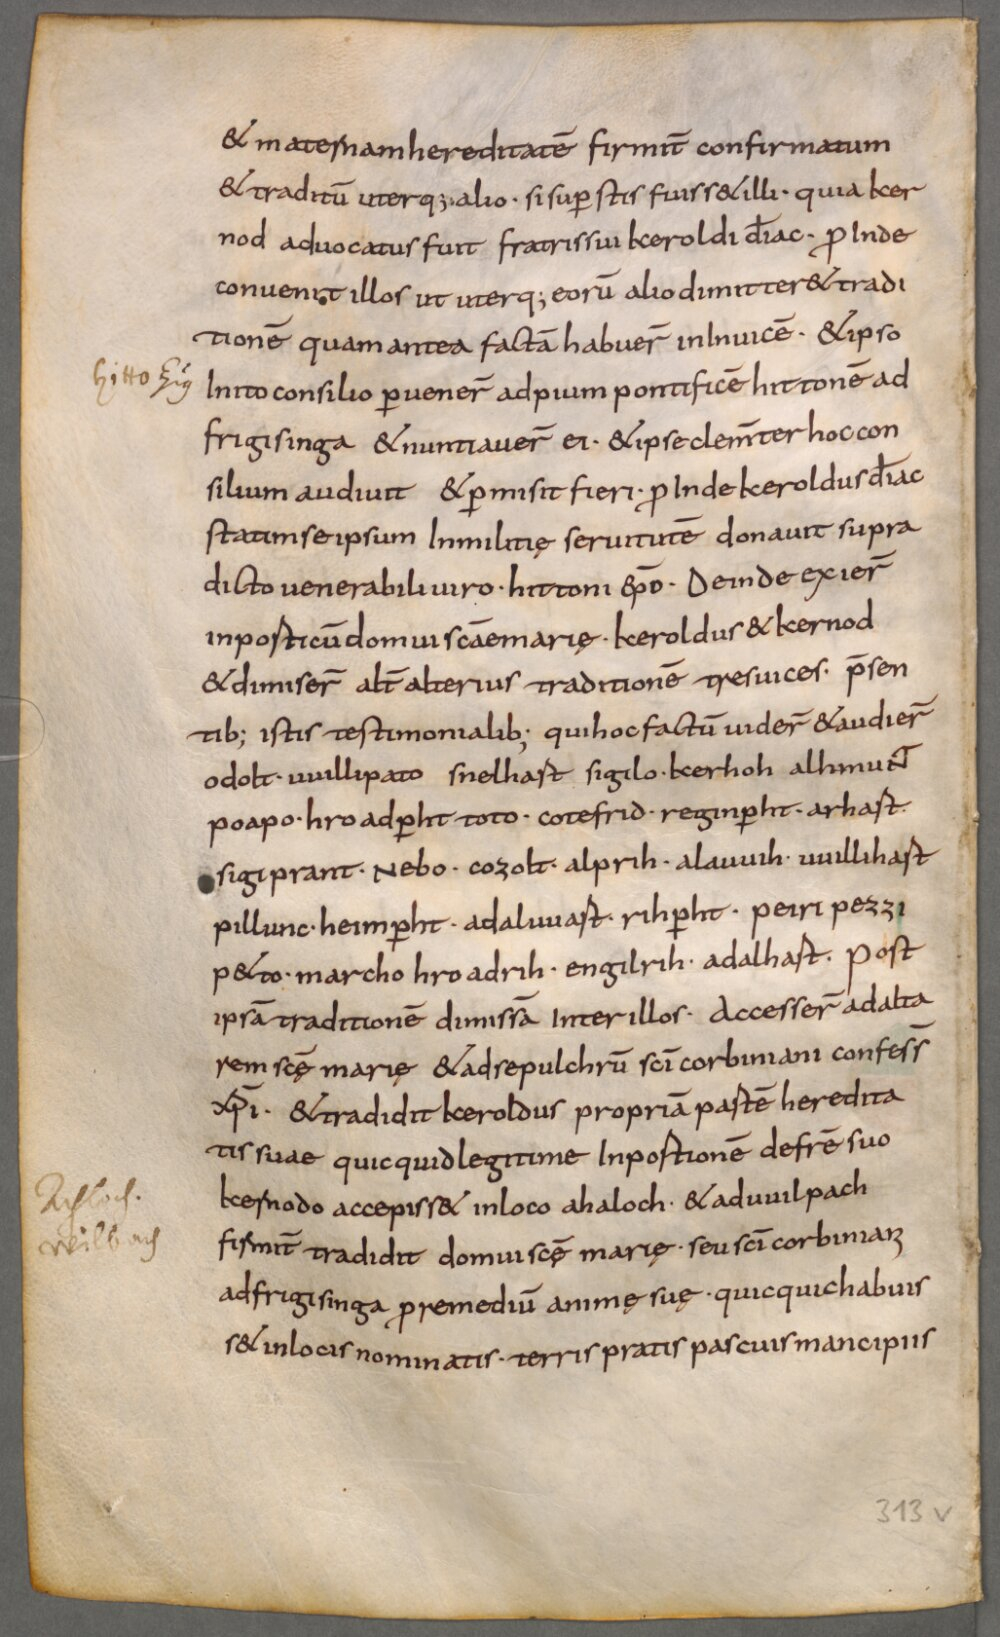 & maternam hereditatē firmit̄ confirmatum
& traditū uterq; alio · si sup̄stis fuiss& illi · quia ker
nod aduocatus fuit fratris sui keroldi diac̄ · ꝓ Inde
conuenit illos ut uterq; eorū alio dimitter& tradi
tionē quam antea factā habuer̄ in Inuicē · & ipso
hitto Inito consilio ꝑuener̄ ad pium pontificē hittonē ad
frigisinga & nuntiauer̄ ei · & ipse clem̄ter hoc con
silium audiuit & ꝑmisit fieri · ꝓ Inde keroldus diac̄
statim se ipsum In militię seruitutē donauit supra
dicto uenerabili uiro · hittoni ep̄o · Deinde exier̄
in posticū domui sc̄ae marię · keroldus & kernod
& dimiser̄ alt̄ alterius traditionē tres uices · p̄sen
tib; istis testimonialib; qui hoc factū uider̄ & audier̄
odolt · uuillipato snelhast sigilo · kerhoh alhmunt
poapo · hroadꝑht toto · cotefrid · reginꝑht · arhast ·
sigiprant · Nebo · cozolt · alprih · alauuih · uuillihast
pillunc · heimꝑht · adaluuast · rihꝑht · peiri pezzi
p&to · marcho hroadrih · engilrih · adalhast · Post
ipsā traditionē dimissā Inter illos · Accesser̄ ad alta
rem scę̄ marię & ad sepulchrū sc̄i corbiniani confess̄
xp̄i · & tradidit keroldus propriā partē heredita
tis suae quicquid legitime In portionē de fr̄e suo
Achloch. kernodo accepiss& in loco ahaloch · & ad uuilpach
weilbach firmit̄ tradidit domui scę̄ marię · seu sc̄i corbiniani
ad frigisinga ꝓ remediū animę suę · quicquic habuis
s& in locis nominatis · terris pratis pascuis mancipiis
313 v